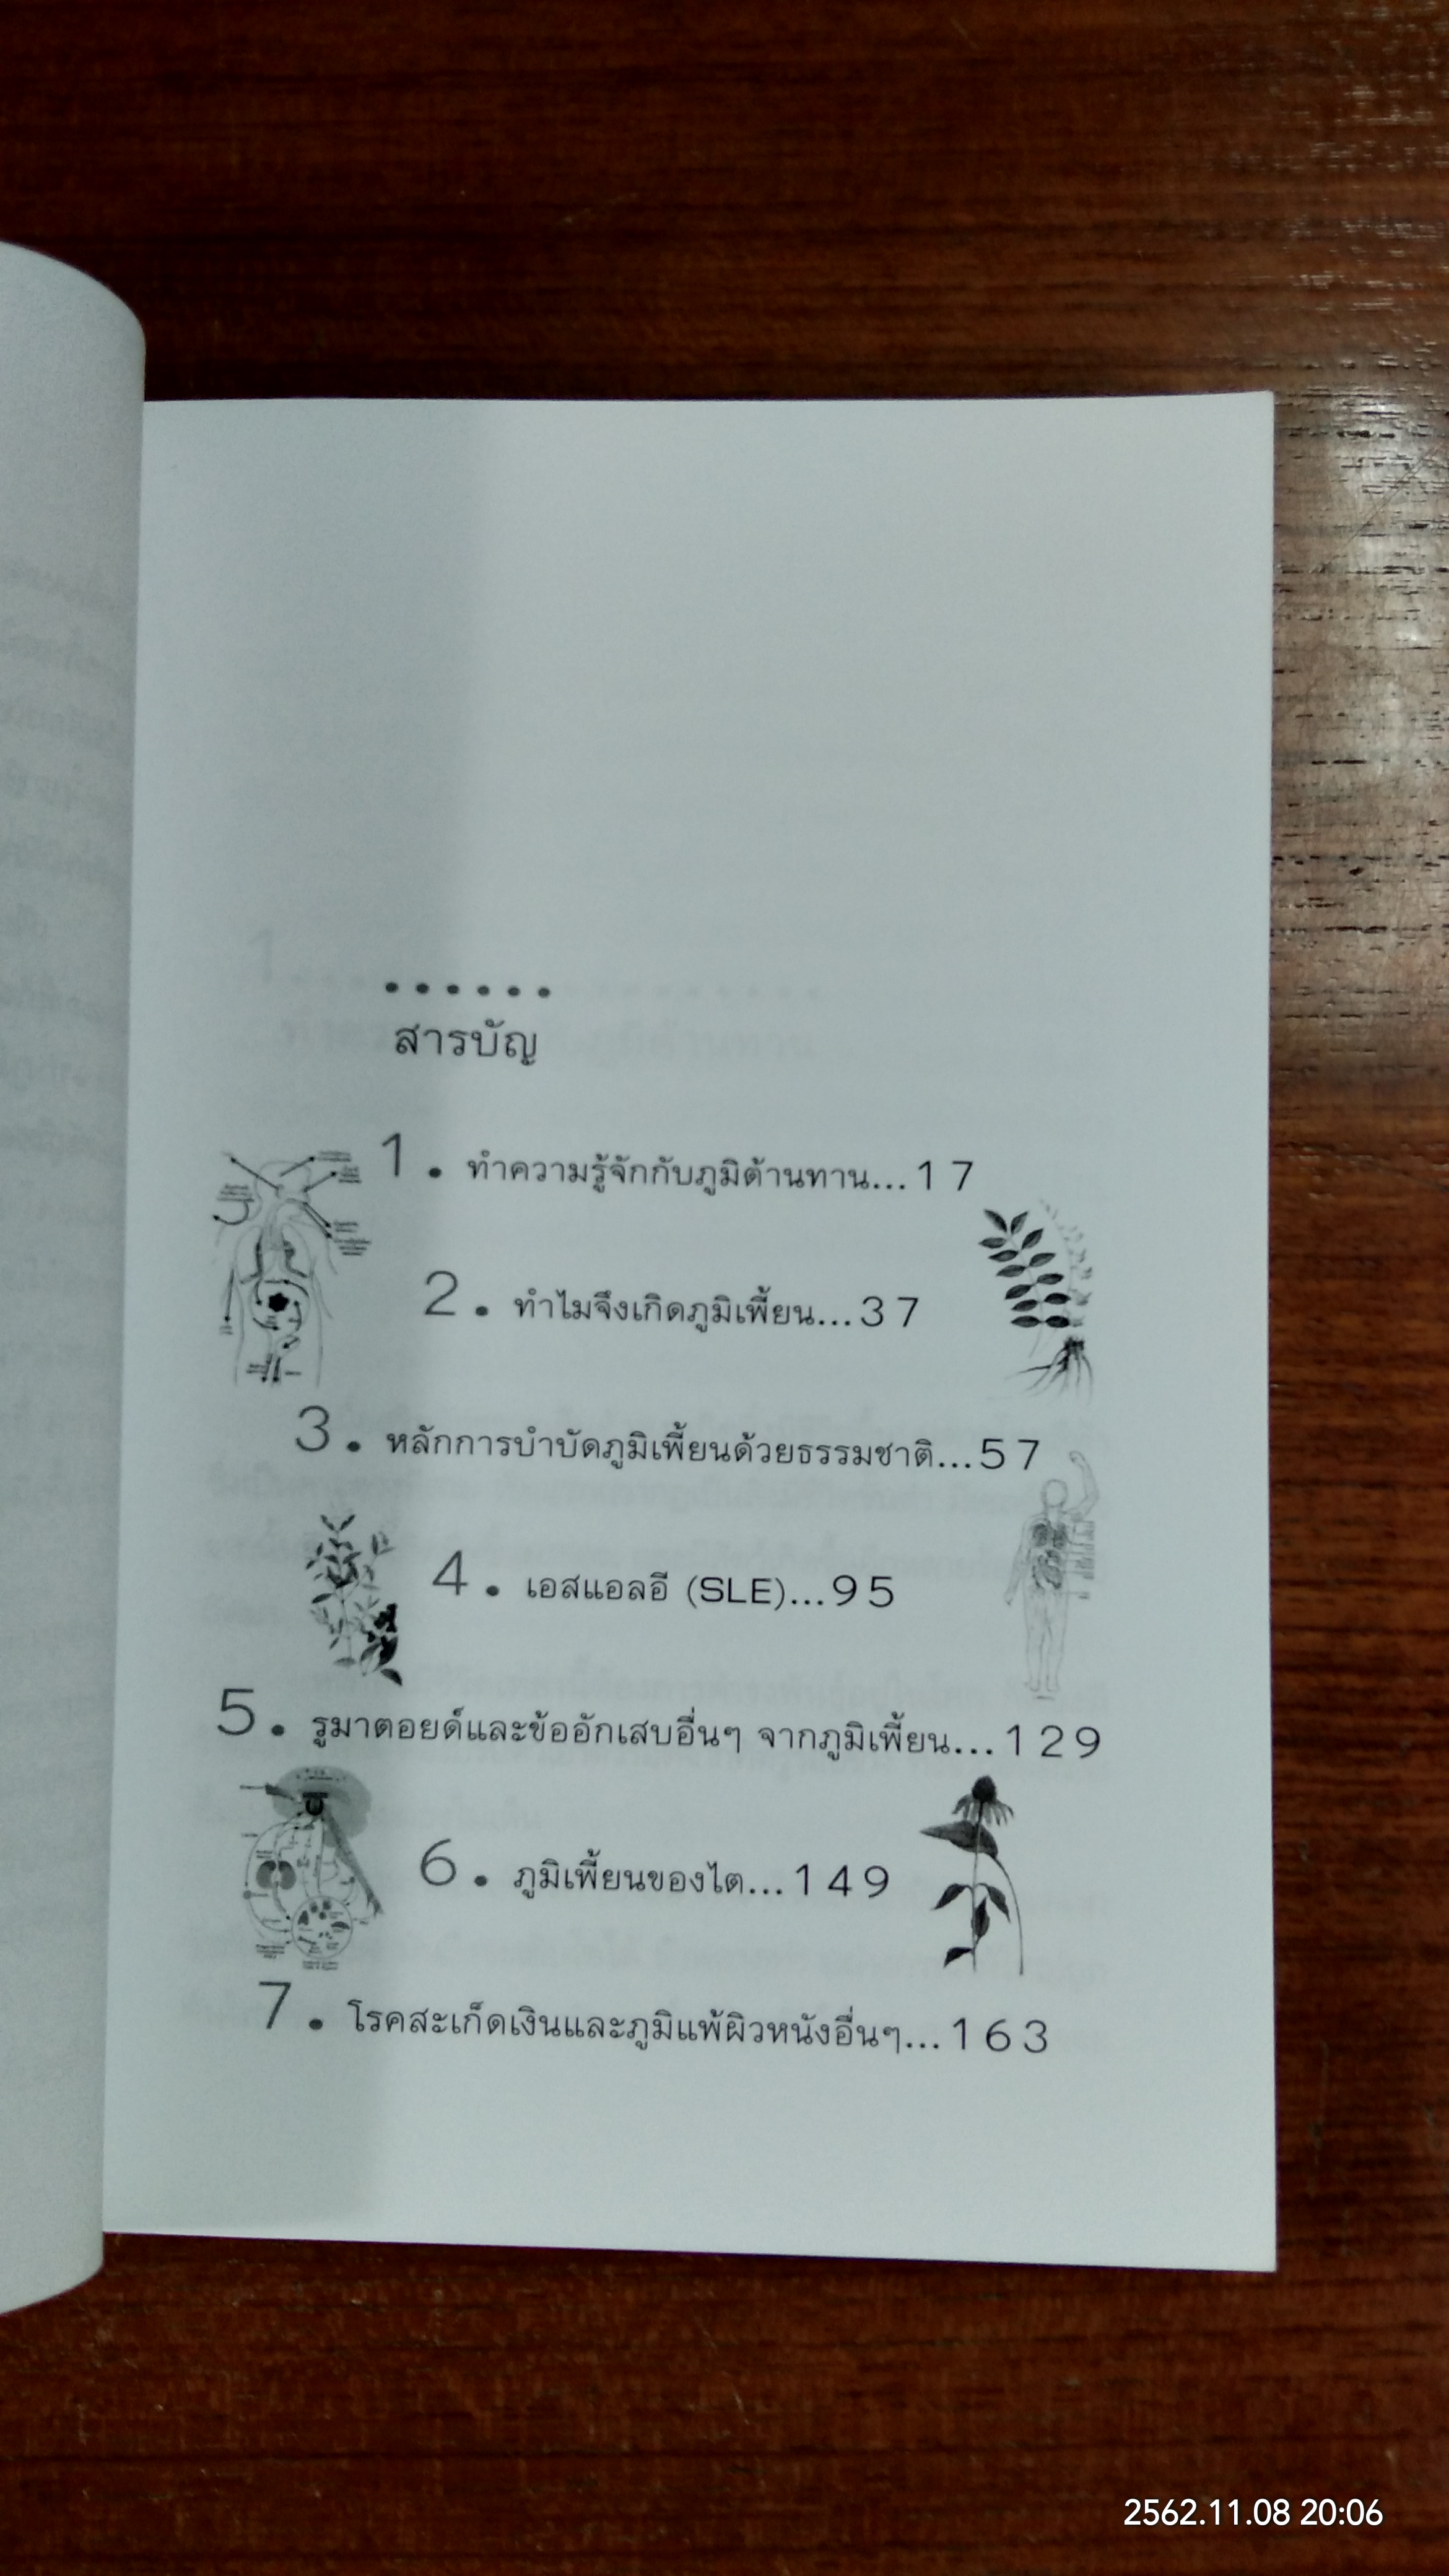 สารบัญ
1. ทำความรู้จักกับภูมิต้านทาน...17
2. ทำไมจึงเกิดภูมิเพี้ยน...37
3. หลักการบำบัดภูมิเพี้ยนด้วยธรรมชาติ...57
4. เอสแอลอี (SLE)...95
5. รูมาตอยด์และข้ออักเสบอื่นๆ จากภูมิเพี้ยน...129
6. ภูมิเพี้ยนของไต...149
7. โรคสะเก็ดเงินและภูมิแพ้ผิวหนังอื่นๆ...163
2562.11.08 20:06